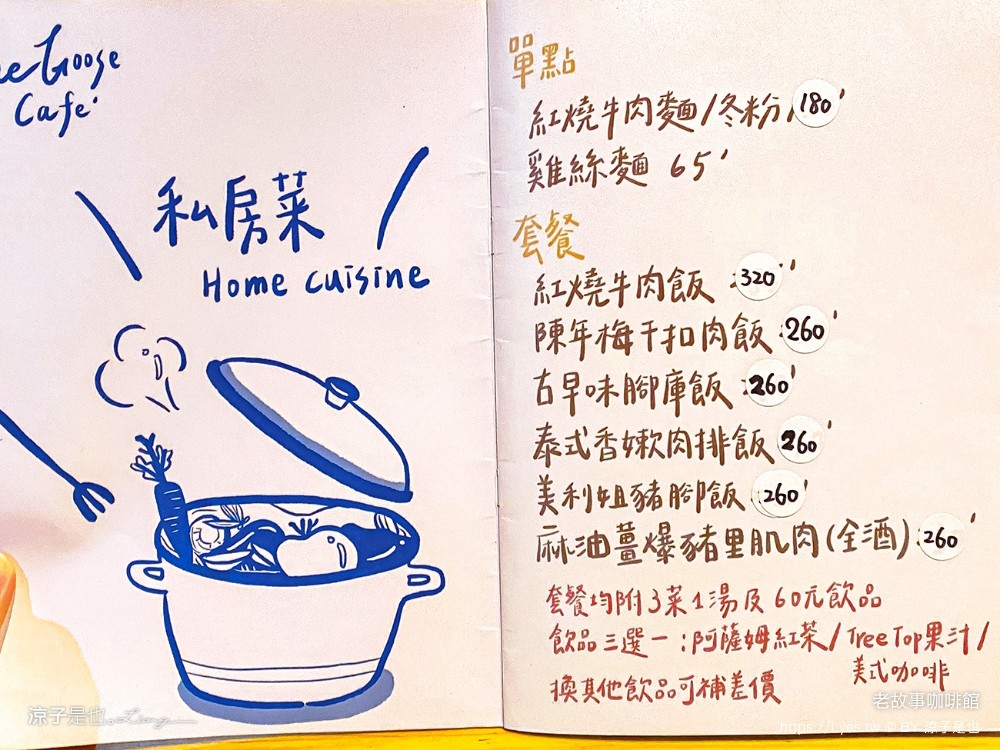 Goose
Cafe
私房菜
Home cuisine
單點
紅燒牛肉麵/冬粉/180
雞絲麵 65
套餐
紅燒牛肉飯 320
陳年梅干扣肉飯 260
古早味腳庫飯 260
泰式香嫰肉排飯 260
美利姐豬腳飯 260
麻油薑爆豬里肌肉(全酒) 260
套餐均附3菜1湯及60元飲品
飲品三選一:阿薩姆紅茶/TreeTop果汁/
美式咖啡
換其他飲品可補差價
涼子是也
老故事咖啡館
涼子是也